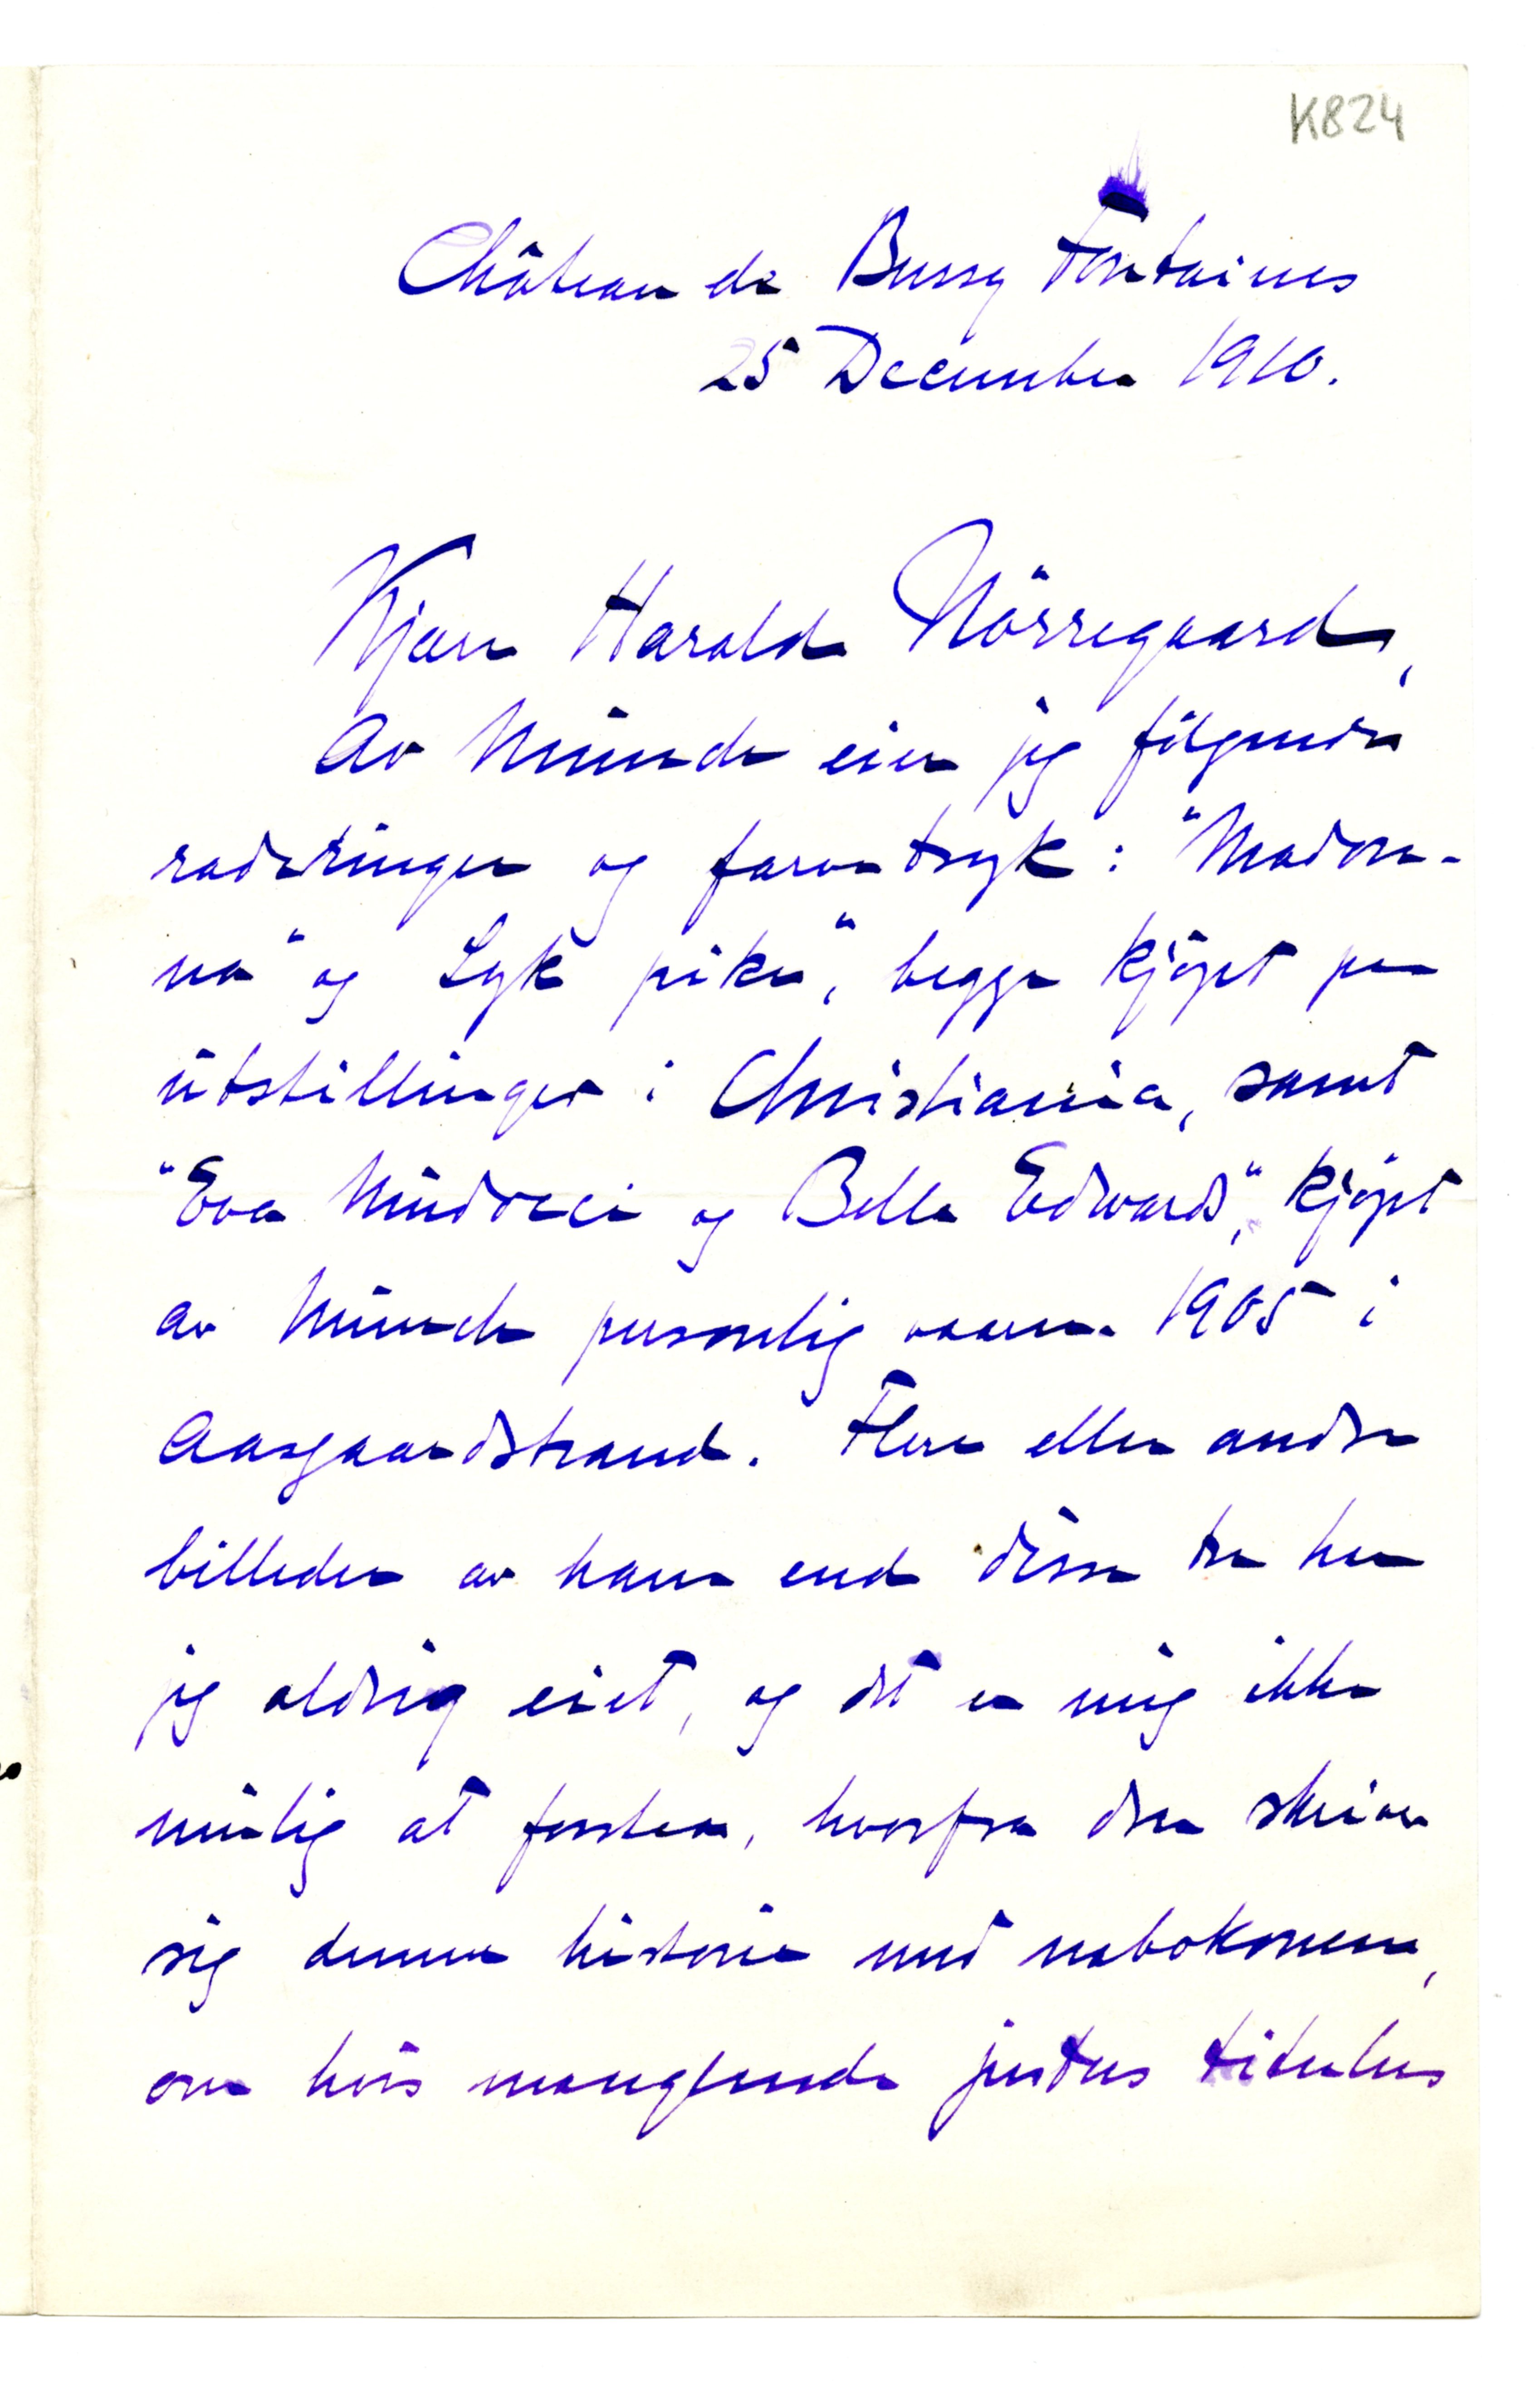 K824
Château de Bussy Fontaines
25 December 1910.
Kjære Harald Nörregaard,
Av Münch eier jeg fölgende
raderinger og farvetryk: "Madon-
na" og "Syk pike", begge kjöpt paa
utstillinger i Christiania, samt
"Eva Mudocci og Bella Edwards", kjöpt
av Münch personlig vaaren 1905 i
Aasgaardstrand. Flere eller andre
billeder av ham end disse tre har
jeg aldrig eiet, og det er mig ikke
mulig at forstaa, hvorfra den skriver
sig denne historie med nabokonen,
om hvis manglende justus titulus